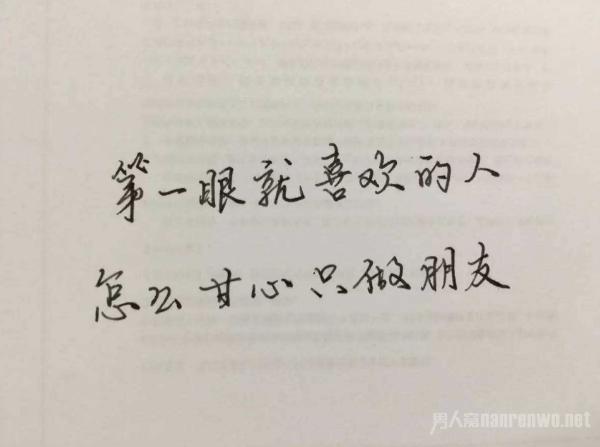 第一眼就喜欢的人
怎么甘心只做朋友
男人窝nanrenwo.net